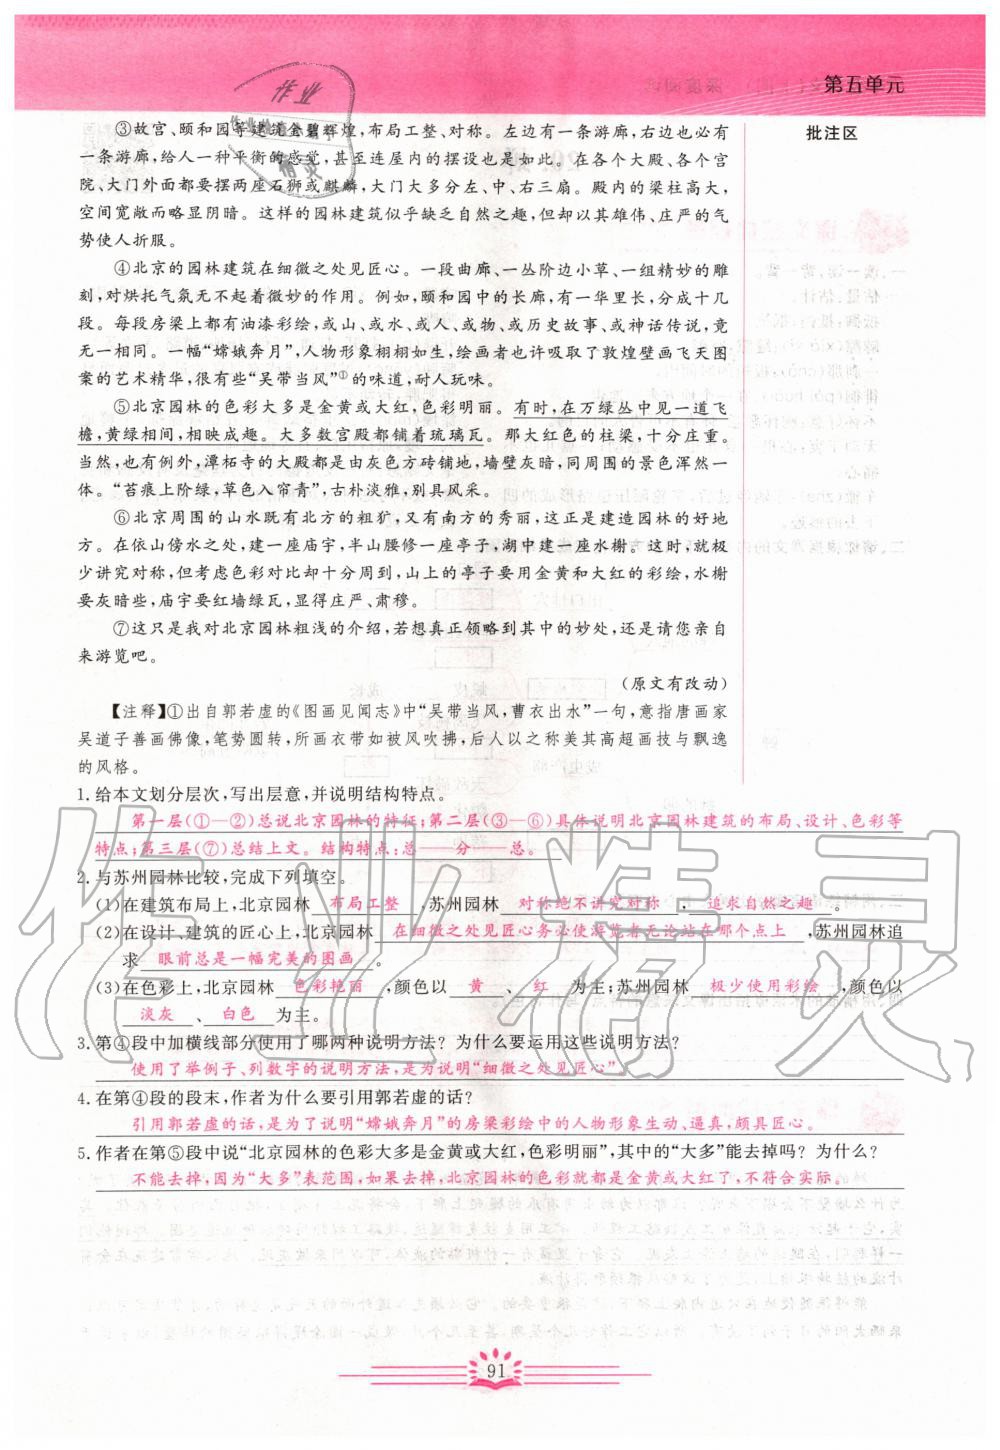 第五单元
批注区
③故宫、颐和园等建筑金碧辉煌,布局工整、对称。左边有一条游廊,右边也必有
一条游廊,给人一种平衡的感觉,甚至连屋内的摆设也是如此。在各个大殿、各个宫
院、大门外面都要摆两座石狮或麒麟,大门大多分左、中、右三扇。殿内的梁柱高大,
空间宽敞而略显阴暗。这样的园林建筑似乎缺乏自然之趣,但却以其雄伟、庄严的气
势使人折服。
④北京的园林建筑在细微之处见匠心。一段曲廊、一丛阶边小草、一组精妙的雕
刻,对烘托气氛无不起着微妙的作用。例如,颐和园中的长廊,有一华里长,分成十几
段。每段房梁上都有油漆彩绘,或山、或水、或人、或物、或历史故事、或神话传说,竟
无一相同。一幅“嫦娥奔月”,人物形象栩栩如生,绘画者也许吸取了敦煌壁画飞天图
案的艺术精华,很有些“吴带当风”①的味道,耐人玩味。
⑤北京园林的色彩大多是金黄或大红,色彩明丽。有时,在万绿丛中见一道飞
檐,黄绿相间,相映成趣。大多数宫殿都铺着琉璃瓦。那大红色的柱梁,十分庄重。
当然,也有例外,潭柘寺的大殿都是由灰色方砖铺地,墙壁灰暗,同周围的景色浑然一
体。“苔痕上阶绿,草色入帘青”,古朴淡雅,别具风采。
⑥北京周围的山水既有北方的粗犷,又有南方的秀丽,这正是建造园林的好地
方。在依山傍水之处,建一座庙宇,半山腰修一座亭子,湖中建一座水榭。这时,就极
少讲究对称,但考虑色彩对比却十分周到,山上的亭子要用金黄和大红的彩绘,水榭
要灰暗些,庙宇要红墙绿瓦,显得庄严、肃穆。
⑦这只是我对北京园林粗浅的介绍,若想真正领略到其中的妙处,还是请您亲自
来游览吧。
(原文有改动)
【注释】①出自郭若虚的《图画见闻志》中“吴带当风,曹衣出水”一句,意指唐画家
吴道子善画佛像,笔势圆转,所画衣带如被风吹拂,后人以之称美其高超画技与飘逸
的风格。
1. 给本文划分层次,写出层意,并说明结构特点。
第一层(①—②)总说北京园林的特征;第二层(③—⑥)具体说明北京园林建筑的布局、设计、色彩等
特点;第三层(⑦)总结上文。结构特点:总——分——总。
2. 与苏州园林比较,完成下列填空。
(1)在建筑布局上,北京园林 布局工整 ,苏州园林 对称绝不讲究对称 , 追求自然之趣 。
(2)在设计、建筑的匠心上,北京园林 在细微之处见匠心务必使游览者无论站在哪个点上 ,苏州园林追
求 眼前总是一幅完美的图画 。
(3)在色彩上,北京园林 色彩艳丽 ,颜色以 黄 、 红 为主;苏州园林 极少使用彩绘 ,颜色以
淡灰 、 白色 为主。
3. 第④段中加横线部分使用了哪两种说明方法?为什么要运用这些说明方法?
使用了举例子、列数字的说明方法,是为说明“细微之处见匠心”
4. 在第④段的段末,作者为什么要引用郭若虚的话?
引用郭若虚的话,是为了说明“嫦娥奔月”的房梁彩绘中的人物形象生动、逼真,颇具匠心。
5. 作者在第⑤段中说“北京园林的色彩大多是金黄或大红,色彩明丽”,其中的“大多”能去掉吗?为什么?
不能去掉,因为“大多”表范围,如果去掉,北京园林的色彩就都是金黄或大红了,不符合实际。
91
作业精灵